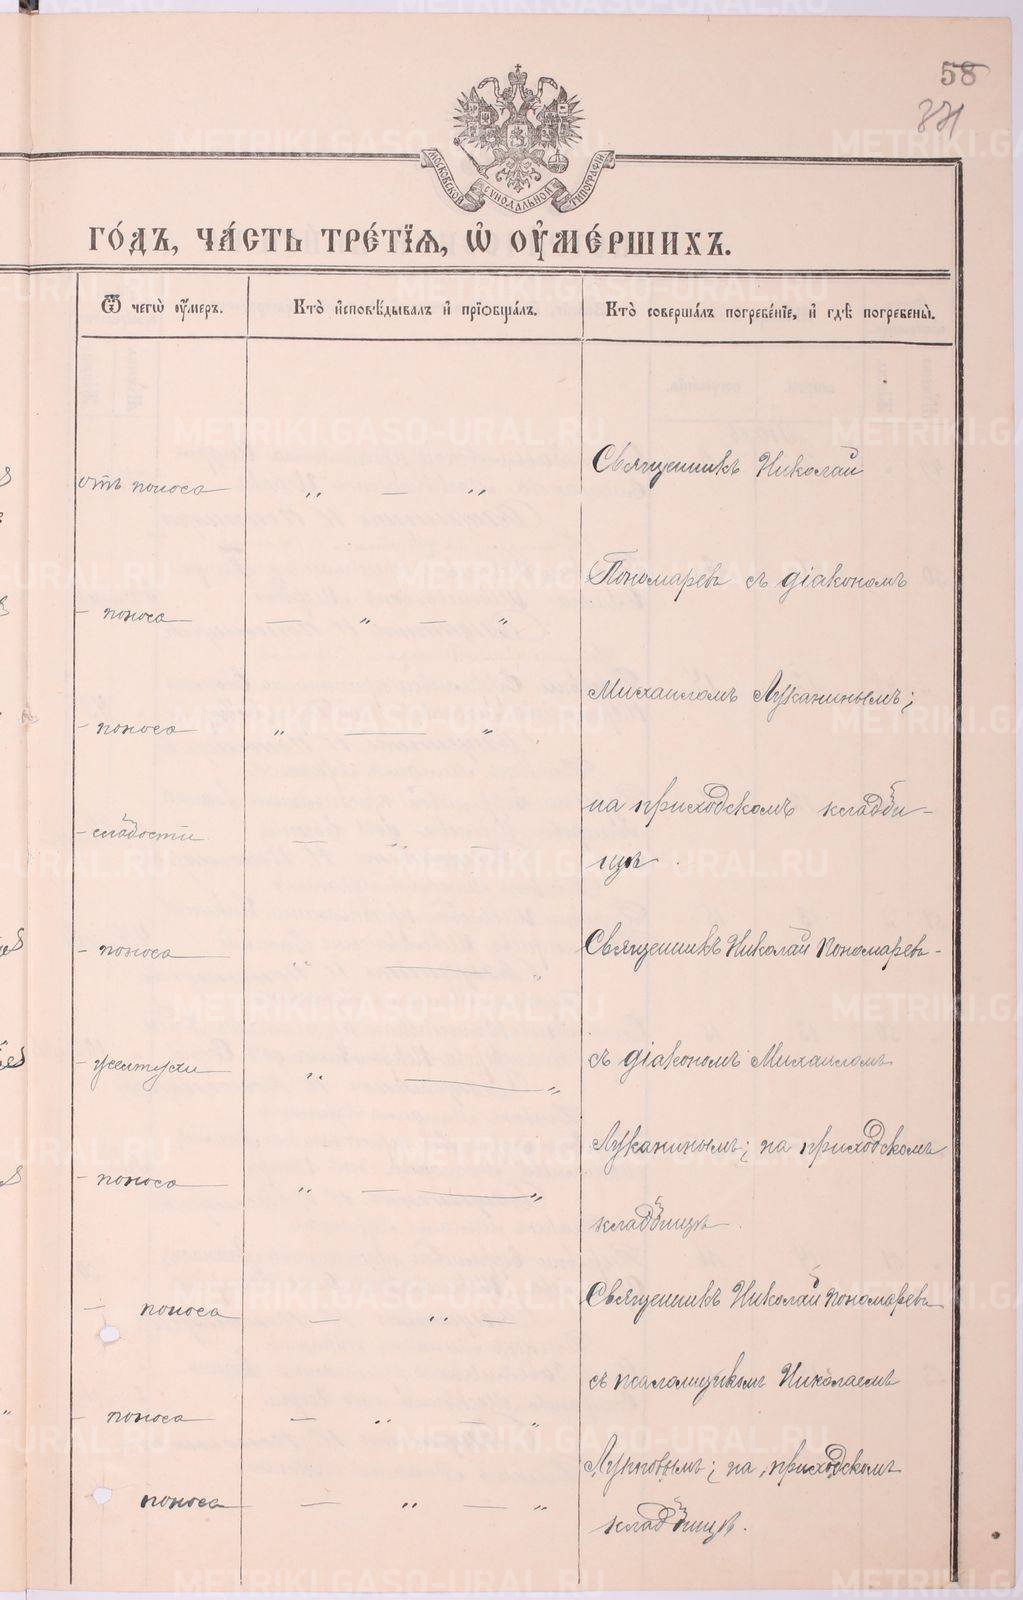 58
МОСКОВСКОЙ СѴНОДАЛЬНОЙ ТИПОГРАФІИ
ГО́ДЪ, ЧА́СТЬ ТРЕ́ТІѦ, Ѡ҆ ОУ҆МЕ́РШИХЪ.
Ѿ чегѡ̀ оу҆́меръ. Кто̀ и҆сповѣ́дывалъ и҆ прїѡбща́лъ. Кто̀ соверша́лъ погребе́нїе, и҆ гдѣ̀ погребены̀.
Священникъ Николай
отъ поноса „ — „
Пономаревъ съ діакономъ
– поноса — „ — „
Михаиломъ Луканинымъ;
– поноса „ — „
на приходскомъ кладби-
– слабости — „ —
щѣ.
Священникъ Николай Пономаревъ-
– поноса „ — „
съ діакономъ Михаиломъ
– желтухи „ — „
Луканинымъ; на приходскомъ
– поноса „ — „
кладбищѣ.
Священникъ Николай Пономаревъ
– поноса — „ —
съ псаломщикомъ Николаемъ
– поноса — „ — „
; на приходскомъ
поноса — „ — „
кладбищѣ.
METRIKI.GASO-URAL.RU